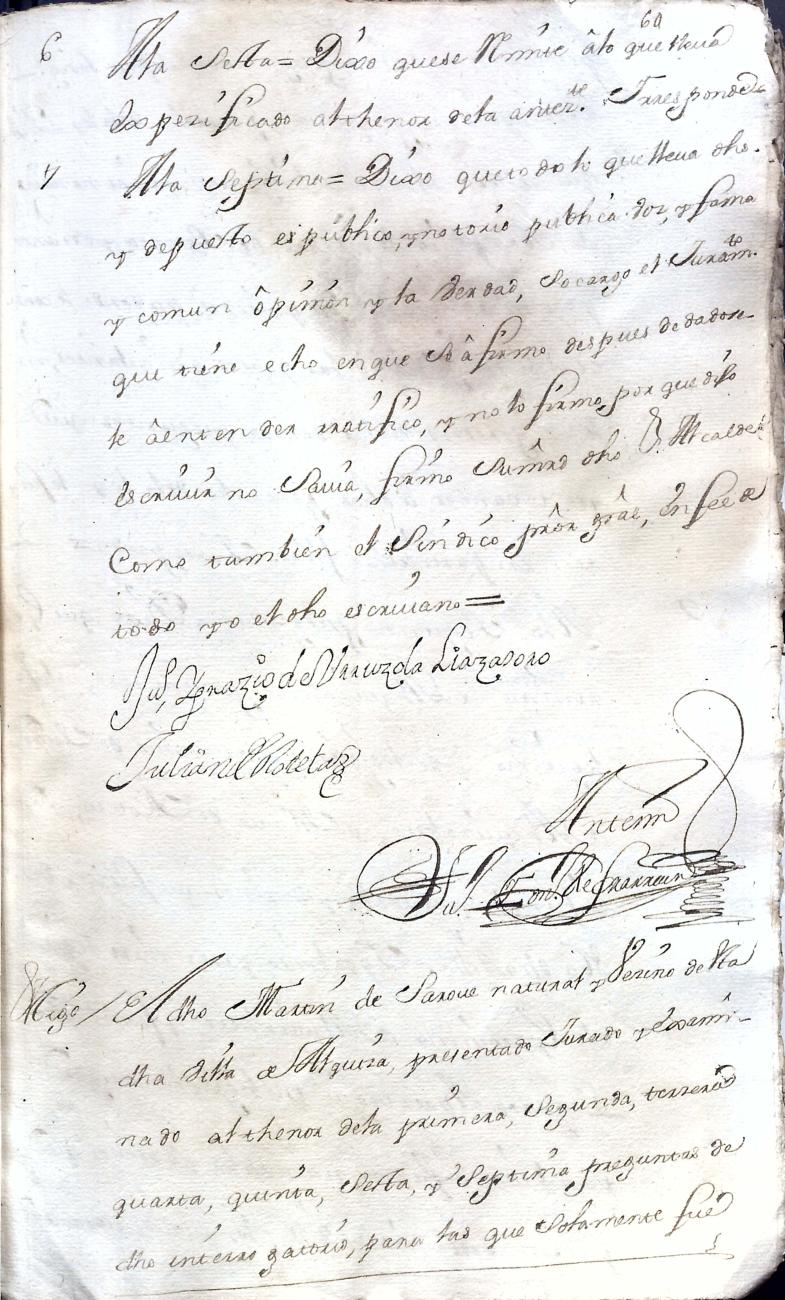 60
6 A la Sesta = Dixo que se Rmite â lo que lleva
expezificado al thenor de la anter.te Y rresponde
7 A la Septima = Dixo que todo lo que lleva dho.
y depuesto es público, y notorio publica voz, y fama
y comun ôpinion y la Verdad, so cargo el Juram.to
que tiene echo en que se âfirmo despues de dadose
le âentender rratifico, y no lo firmo por que dijo
escriuir no Sauia, firmo Sumrd dho S. Alcalde
Como tambien el Sindico prôr grâl, en fee de
todo yo el dho escriuano =
Ju, Ygnazio de Urruzola Lizasoro
Julian de Roteta
Antemi
Ju.
tigo / El dho Martin de Sarove natural y Vezino de esta
dha Villa de Alquiza, presentado Jurado y Exami-
nado al thenor de la primera, segunda, terzera
quarta, quinta, sesta, y Septima preguntas de
dho interrogatorio, para las que solamente fue